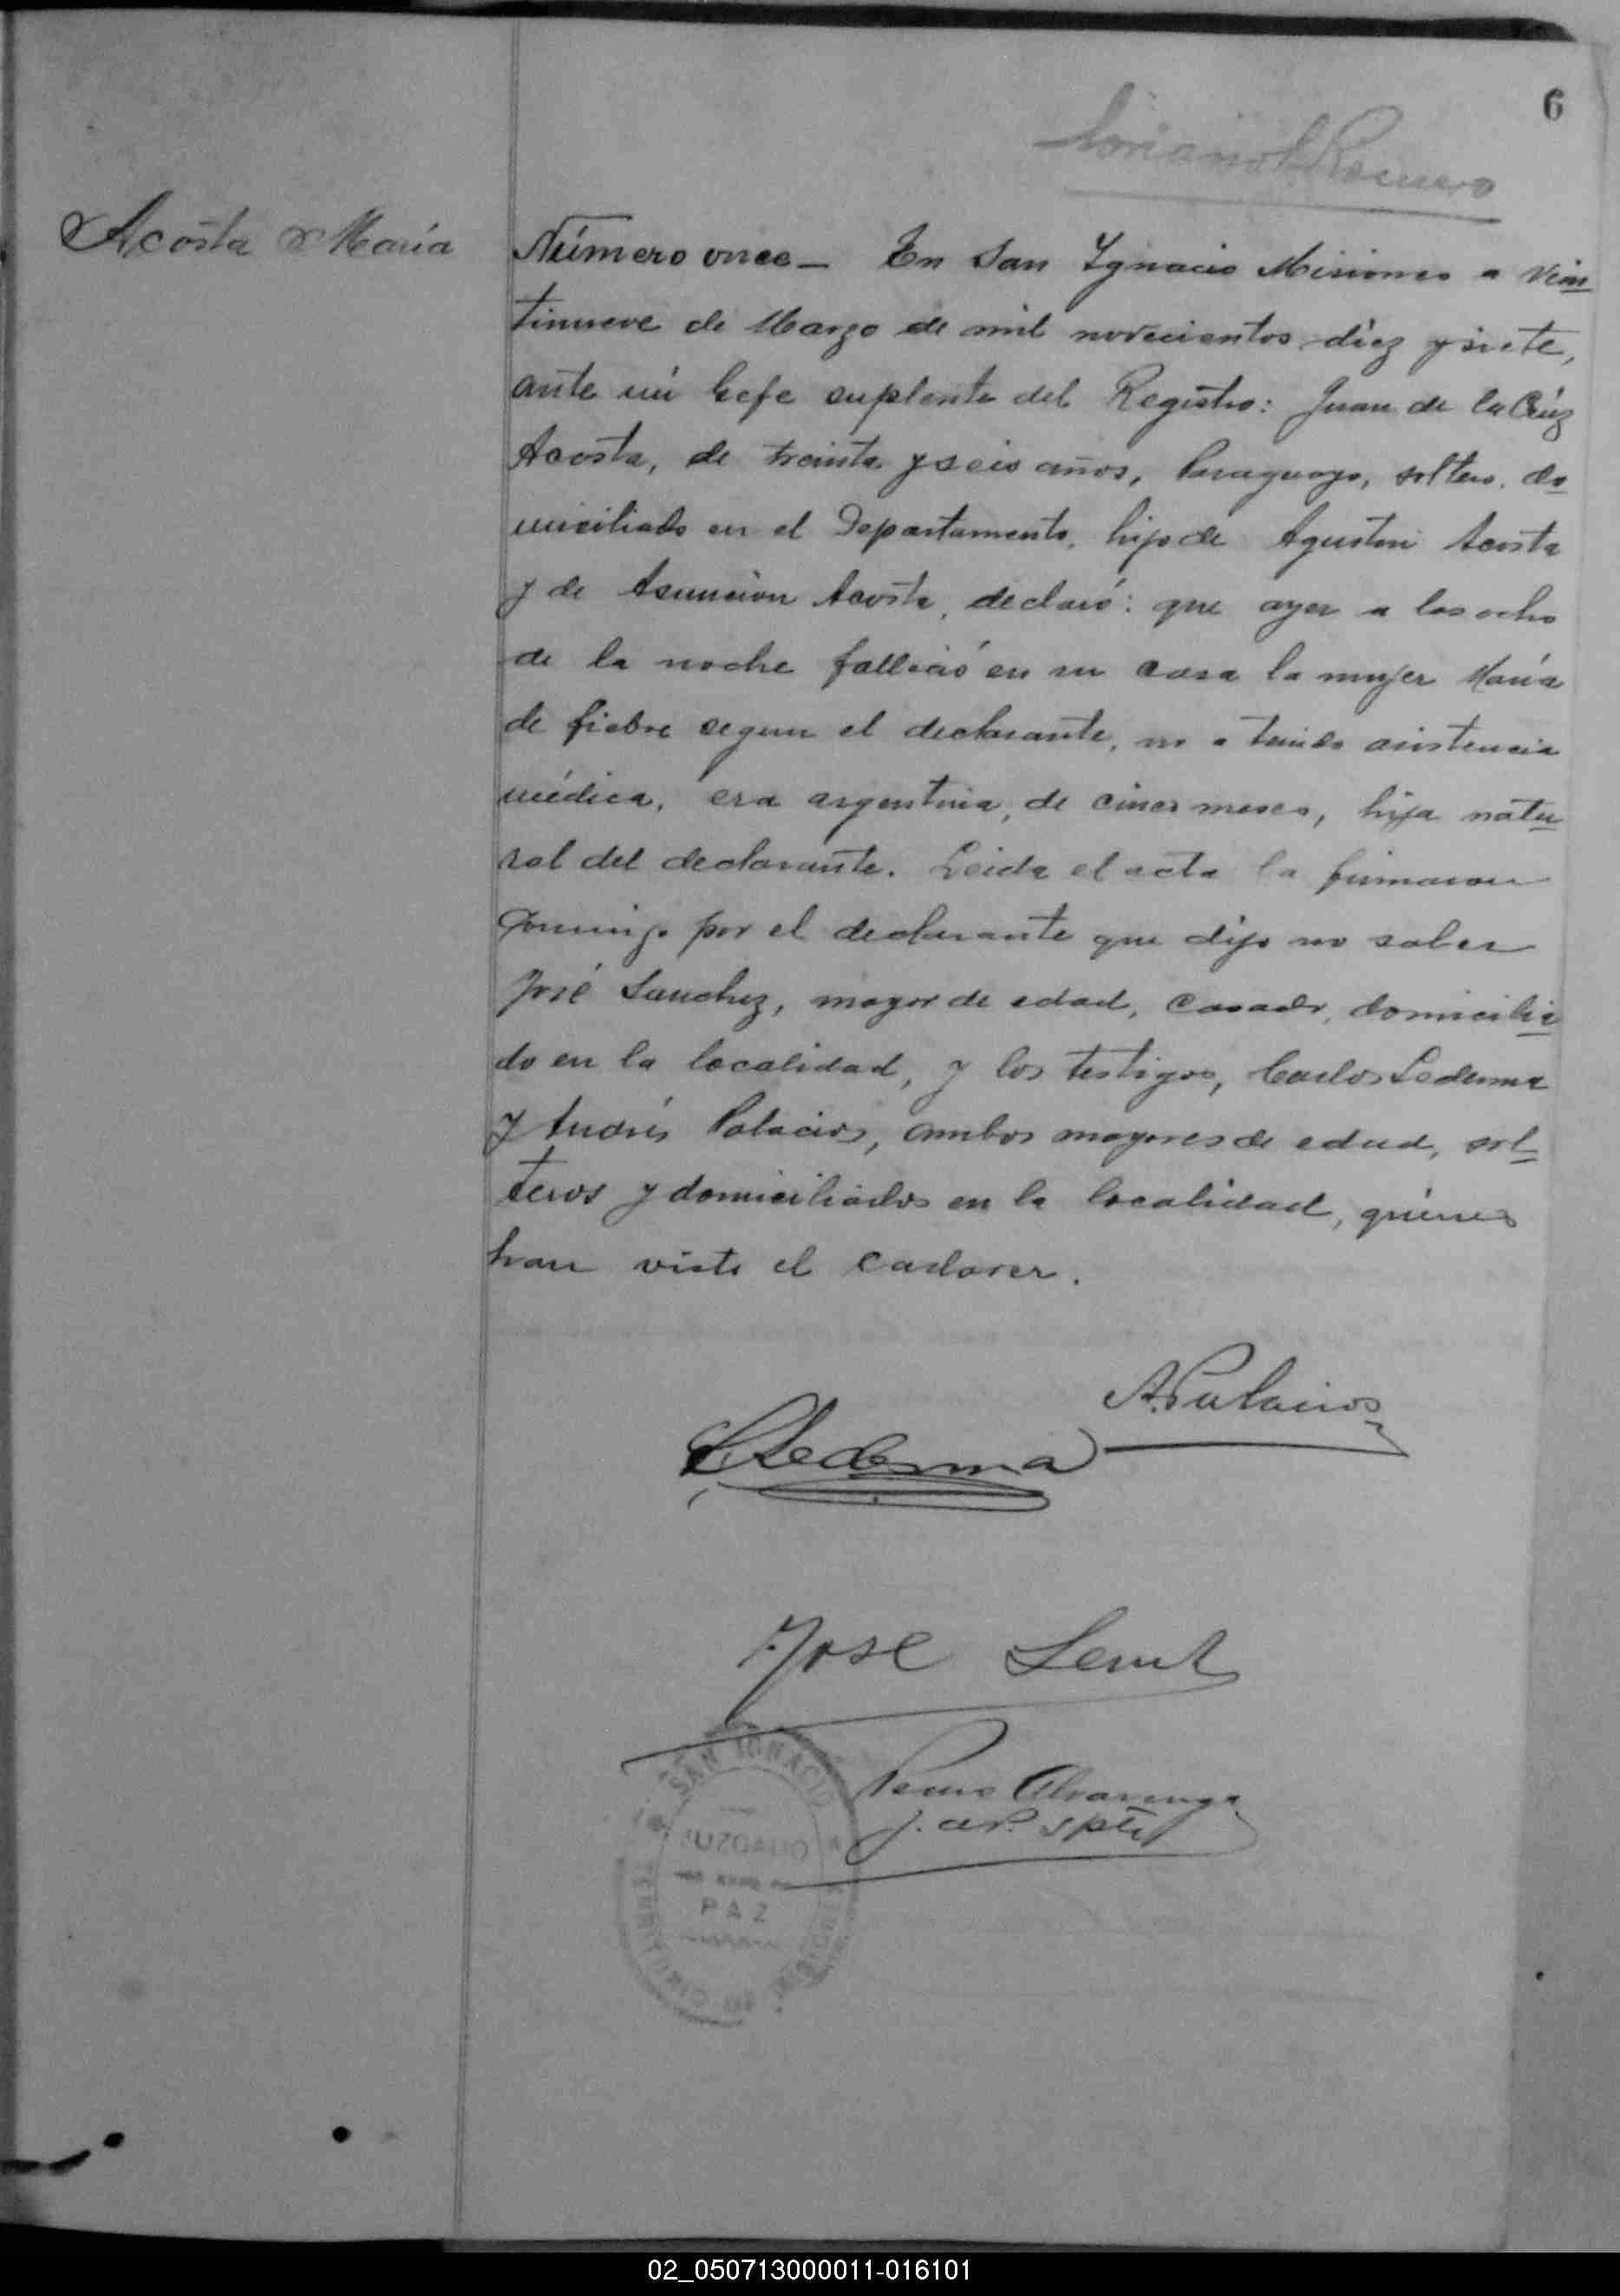 6
Romero
Acosta María
Número once— En San Ygnacio Misiones a vein
tinueve de Marzo de mil novecientos diez y siete,
ante mi Gefe suplente del Registro: Juan de la Crúz
Acosta, de treinta y seis años, Paraguayo, soltero, do
miciliado en el Departamento, hijo de Agustin Acosta
y de Asunción Acosta, declaró: que ayer a las ocho
de la noche falleció en su casa la mujer María
de fiebre segun el declarante, no a tenido asistencia
médica, era argentina, de cinco meses, hija natu
ral del declarante. Leida el acta la firmaron
conmigo por el declarante que dijo no saber
José Sanchez, mayor de edad, casado, domicilia
do en la localidad, y los testigos, Carlos Ledesma
y Andrés Palacios, ambos mayores de edad, sol
teros y domiciliados en la localidad, quiénes
han visto el cadaver.
A. Palacios
C Ledesma
José
Pedro Alvarenga
J. de P. Spte
SAN IGNACIO
JUZGADO
DE
PAZ
TERRITORIO DE MISIONES
02_050713000011-016101